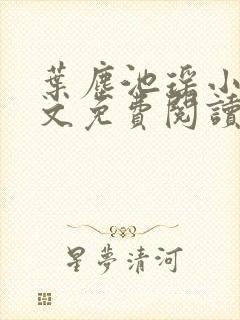 葉塵池瑶小
文免費閱讀
星夢清河